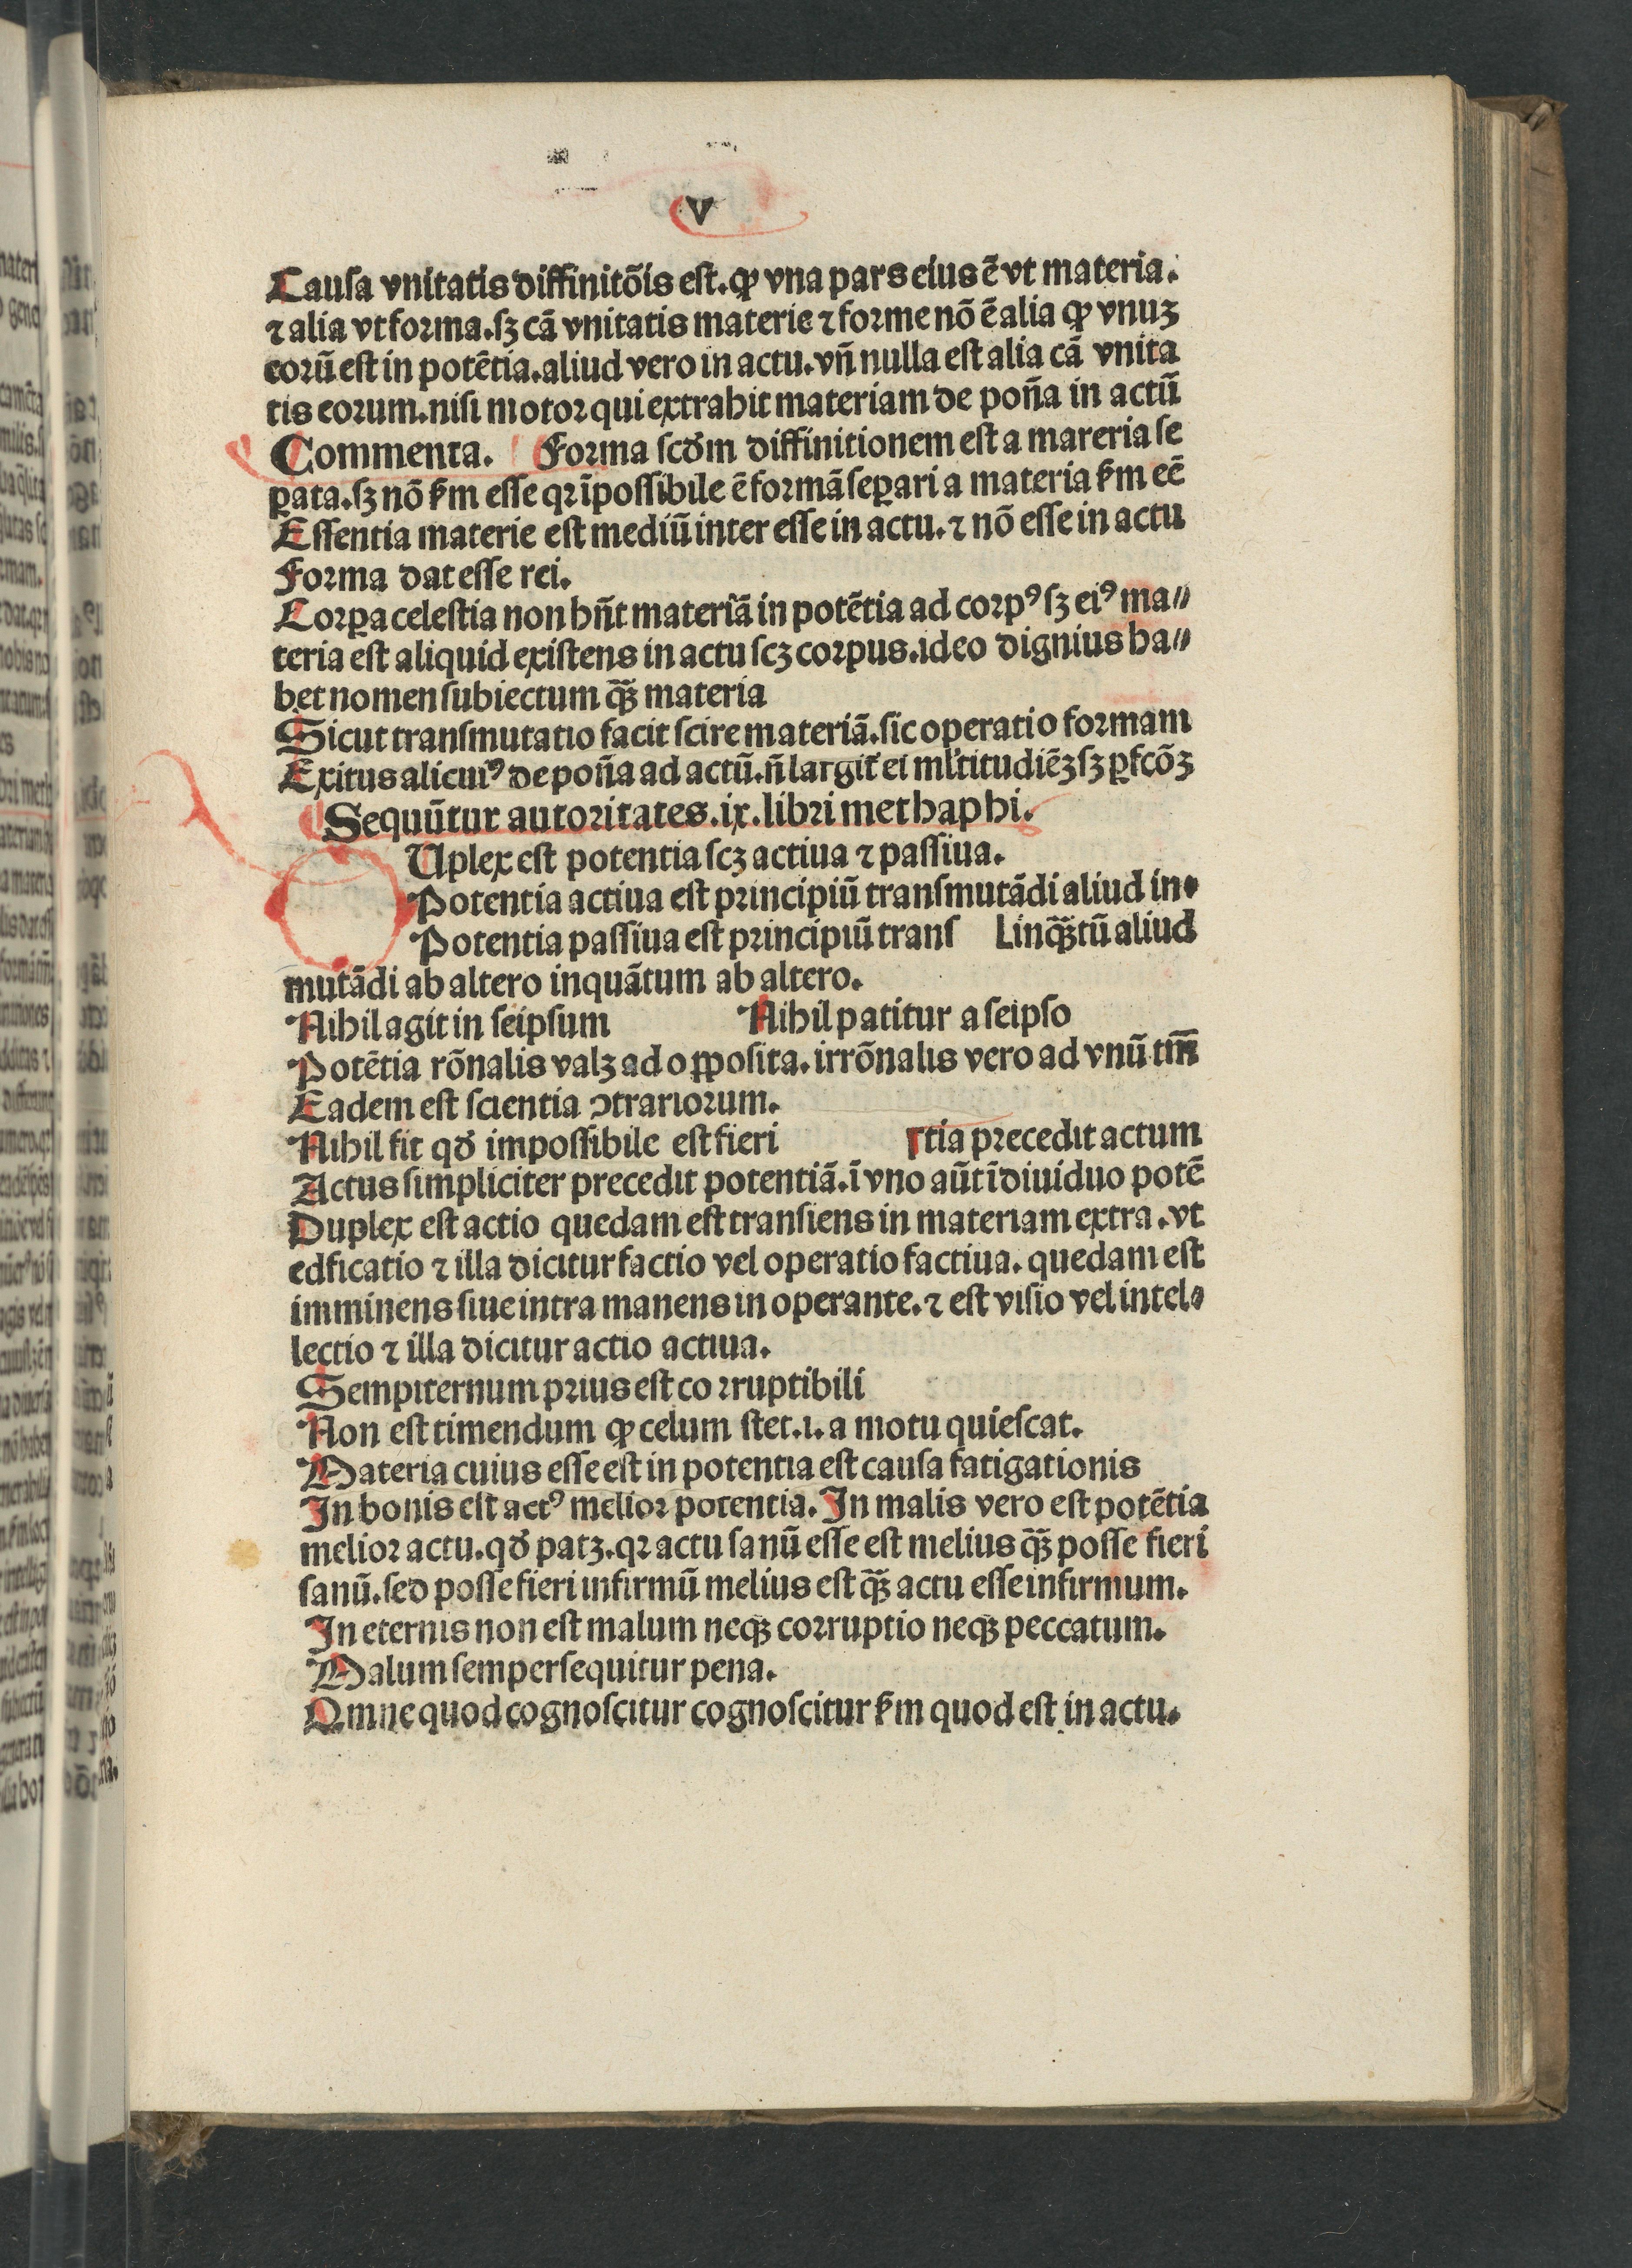 v
Causa vnitatis diffinitõis est. ꝙ vna pars eius ē vt materia.
⁊ alia vt forma. sꝫ cā vnitatis materie ⁊ forme nō ē alia ꝙ vnuꝫ
eorū est in potētia. aliud vero in actu. vñ nulla est alia cā vnita
tis eorum. nisi motor qui extrahit materiam de poña in actū
Commenta. Forma scd̄m diffinitionem est a mareria se
ꝑata. sꝫ nō ẜm esse qꝛ īpossibile ē formā seꝑari a materia ẜm eē
Essentia materie est mediū inter esse in actu. ⁊ nō esse in actu
Forma dat esse rei.
Corꝑa celestia non hñt materiā in potētia ad corpꝰ sꝫ eiꝰ ma⸗
teria est aliquid existens in actu scꝫ corpus. ideo dignius ha⸗
bet nomen subiectum qꝫ̄ materia
Sicut transmutatio facit scire materiā. sic operatio formam
Exitus alicuiꝰ de poña ad actū. ñ largit᷑ ei ml̓titudiēꝫ sꝫ ꝑfcōꝫ
Sequūtur autoritates .ix. libri methaphi.
Uplex est potentia scꝫ actiua ⁊ passiua.
Potentia actiua est principiū transmutādi aliud in⸗
Potentia passiua est principiū trans Linqꝫ̄tū aliud
mutādi ab altero inquātum ab altero.
Nihil agit in seipsum Nihil patitur a seipso
Potētia rōnalis valꝫ ad oꝓposita. irrōnalis vero ad vnū tm̄
Eadem est scientia ↄtrariorum.
Nihil fit qd̄ impossibile est fieri ꞅtia precedit actum
Actus simpliciter precedit potentiā. ī vno aūt īdiuiduo potē
Duplex est actio quedam est transiens in materiam extra. vt
edficatio ⁊ illa dicitur factio vel operatio factiua. quedam est
imminens siue intra manens in operante. ⁊ est visio vel intel⸗
lectio ⁊ illa dicitur actio actiua.
Sempiternum prius est corruptibili
Non est timendum ꝙ celum stet .i. a motu quiescat.
Materia cuius esse est in potentia est causa fatigationis
In bonis est actꝰ melior potentia. In malis vero est potētia
melior actu. qd̄ patꝫ. qꝛ actu sanū esse est melius qꝫ̄ posse fieri
sanū. sed posse fieri infirmū melius est qꝫ̄ actu esse infirmum.
In eternis non est malum neqꝫ corruptio neqꝫ peccatum.
Malum semper sequitur pena.
Omne quod cognoscitur cognoscitur ẜm quod est in actu.